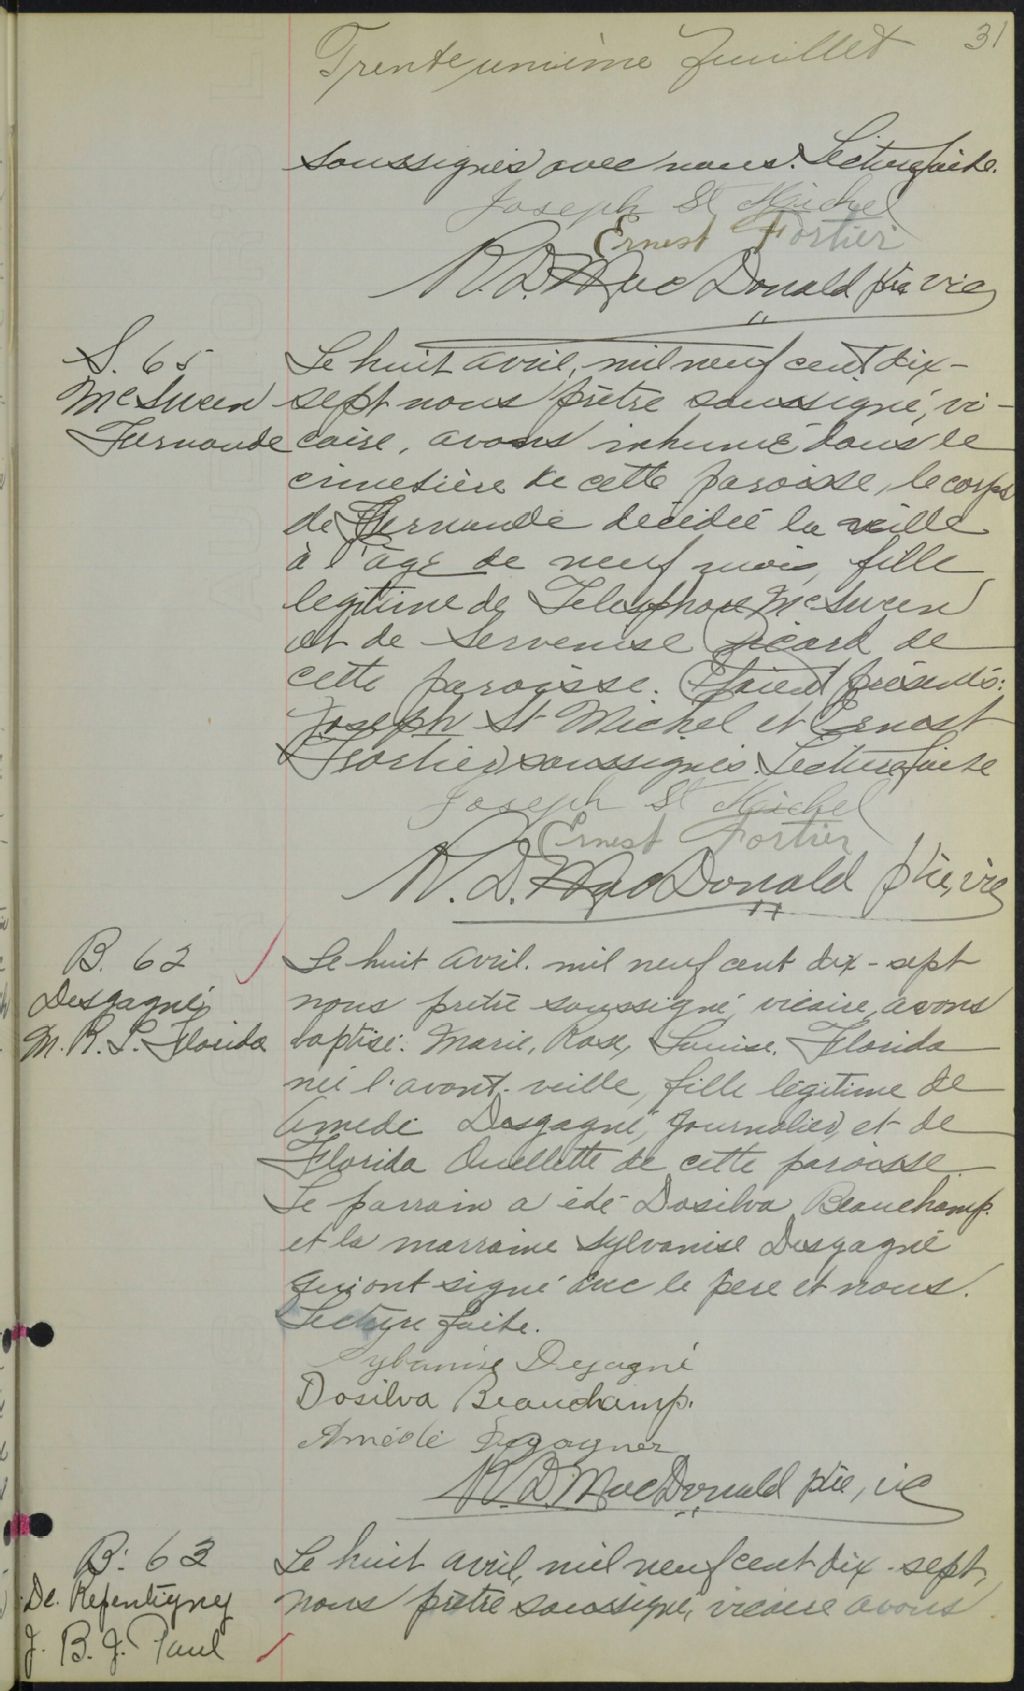 Trente unième feuillet 31
soussignés avec nous. Lecture faite.
Joseph St Michel
Ernest Fortier
R. D. MacDonald ptre vic
S. 65
McSween
Fernande
Le huit avril, mil neuf cent dix-
sept nous prêtre soussigné, vi-
caire, avons inhumé dans le
cimetière de cette paroisse, le corps
de Fernande décédée la veille
à l'âge de neuf mois, fille
légitime de Télesphore McSween
et de Servenise Picard de
cette paroisse. Étaient présents:
Joseph St Michel et Ernest
Fortier, soussignés. Lecture faite
Joseph St Michel
Ernest Fortier
R. D. MacDonald ptre, vic
B. 62
Desgagné
M. R. L. Florida
Le huit avril. mil neuf cent dix-sept
nous prêtre soussigné, vicaire, avons
baptisé: Marie, Rose, Louise, Florida
née l'avant-veille, fille légitime de
Amédé Desgagné, journalier, et de
Florida Ouellette de cette paroisse.
Le parrain a été Dosilva Beauchamp.
et la marraine Sylvanise Desgagné
qui ont signé avec le père et nous.
Lecture faite.
Sylvanise Degagné
Dosilva Beauchamp.
Amédé Degagner
R. D. MacDonald ptre, vic
B. 63
De Repentigny
J. B. J. Paul
Le huit avril, mil neuf cent dix-sept,
nous prêtre soussigné, vicaire avons